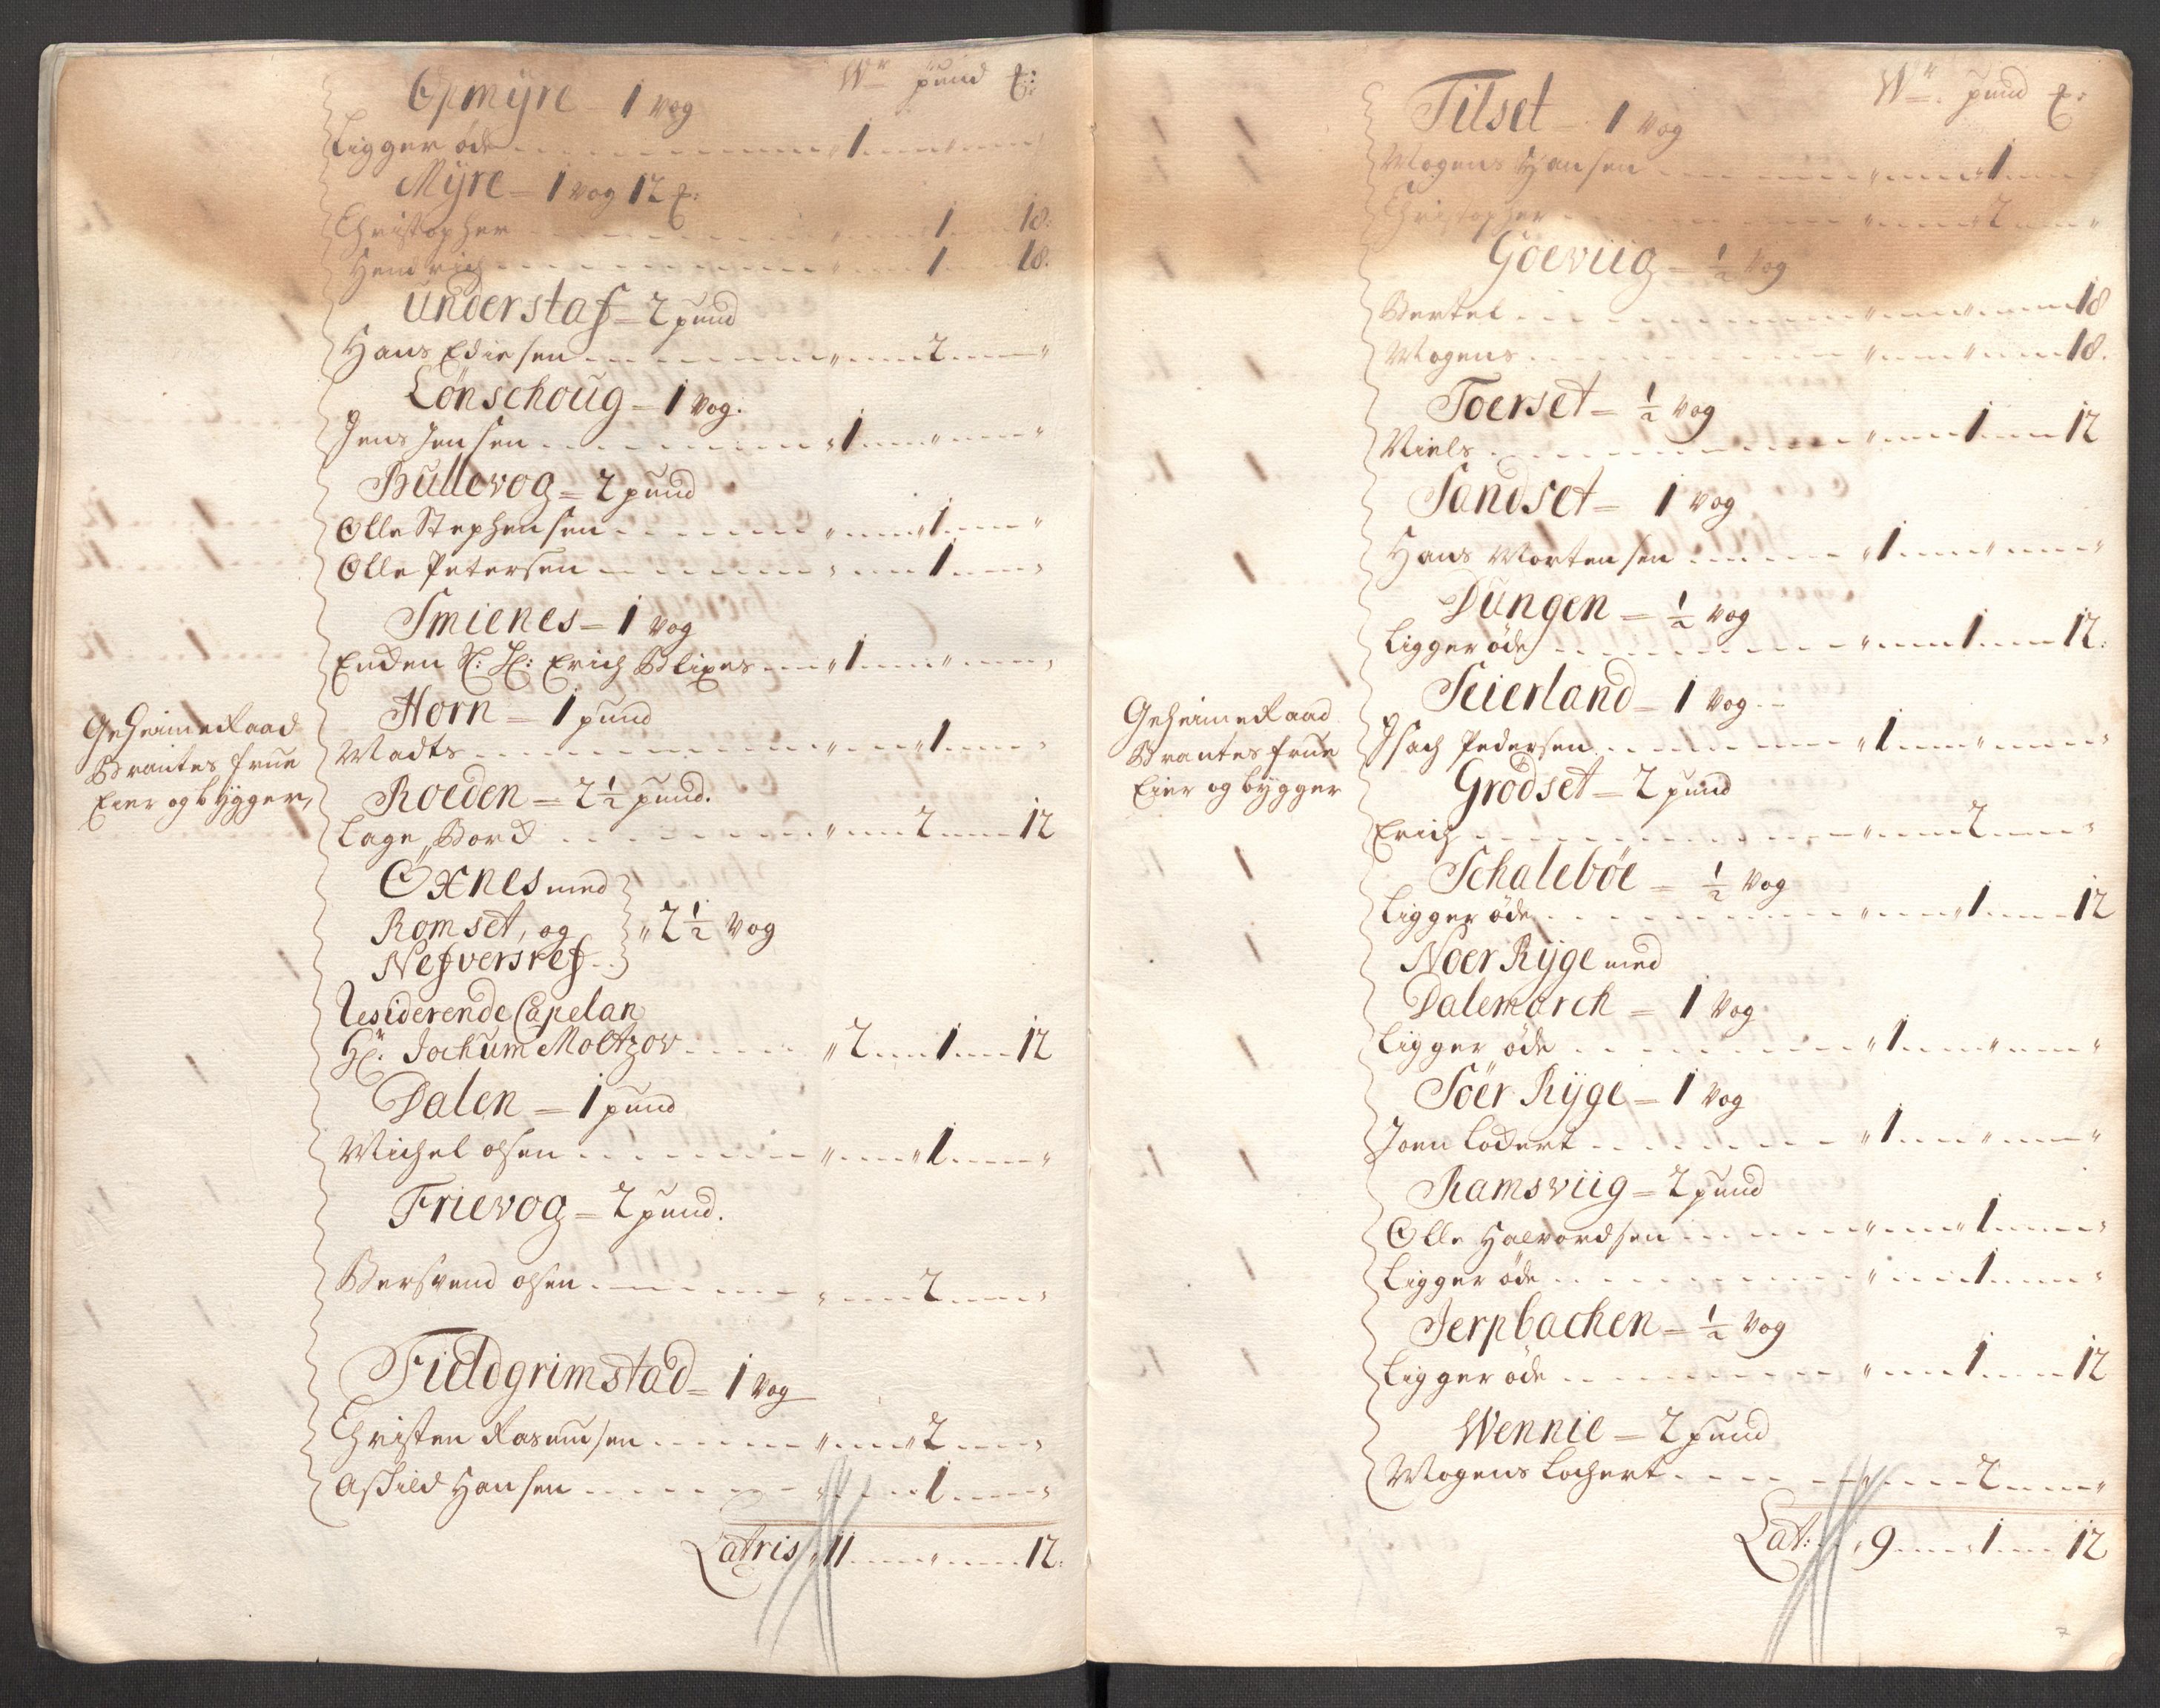 Wr pund ℔:
Opmyre - 1 vog
Ligger øde " 1 " "
Myre - 1 vog 12 ℔:
Christopher " 1 18:
Hendrich " 1 18.
Understaf - 2 pund
Hans Ediesen " 2 "
Lønschoug - 1 vog.
Jens Jensen " 1 " "
Bullevog = 2 pund
Olle Stephensen " 1 "
Olle Petersen " 1 "
Smienes - 1 vog
Enken Sl: Hr: Erich Blixes " 1 " "
Geheimeraad
Brantes frue
Eier og bygger,
Horn - 1 pund
Madts " 1 "
Roeden = 2 1/2 pund.
Lage Bord " 2 12
Oxnes med
Romset, og " 2 1/2 vog
Nefversref
Residerende Capelan
Hr. Jochum Moltzov " 2 1 12
Dalen - 1 pund
Michel olsen " 1 "
Frievog = 2 pund.
Bersvend olsen " 2 "
Fieldgrimstad = 1 vog
Christen Rasmusen " 2 "
Assied Hansen " 1 "
Latris " 11 " 12:
Wr pund ℔:
Tilset - 1 vog
Mogens Hansen " 1 "
Christopher " 2 "
Goeviig - 1/2 vog
Bertel " " 18
Mogens " " 18.
Toerset - 1/2 vog
Niels " 1 12
Sandset - 1 vog
Hans Mortensen " 1 " "
Dungen = 1/2 vog
Ligger øde " 1 12:
Geheimeraad
Brantes frue
Eier og bygger
Seierland - 1 vog
Isach Pedersen " 1 " "
Grodset - 2 pund
Erich " 2 "
Schalebøe - 1/2 vog
Ligger øde " 1 12
Noer Ryge med
Dalemarch = 1 vog
Ligger øde " 1 " "
Söer Ryge - 1 vog
Joen Lodert " 1 " "
Ramsviig = 2 pund
Olle Halvordsen " 1 "
Ligger øde " 1 "
Jerpbachen - 1/2 vog
Ligger øde " 1 12
Wennie - 2 pund
Mogens Lochert " 2 "
Lat: " 9 1 12
7